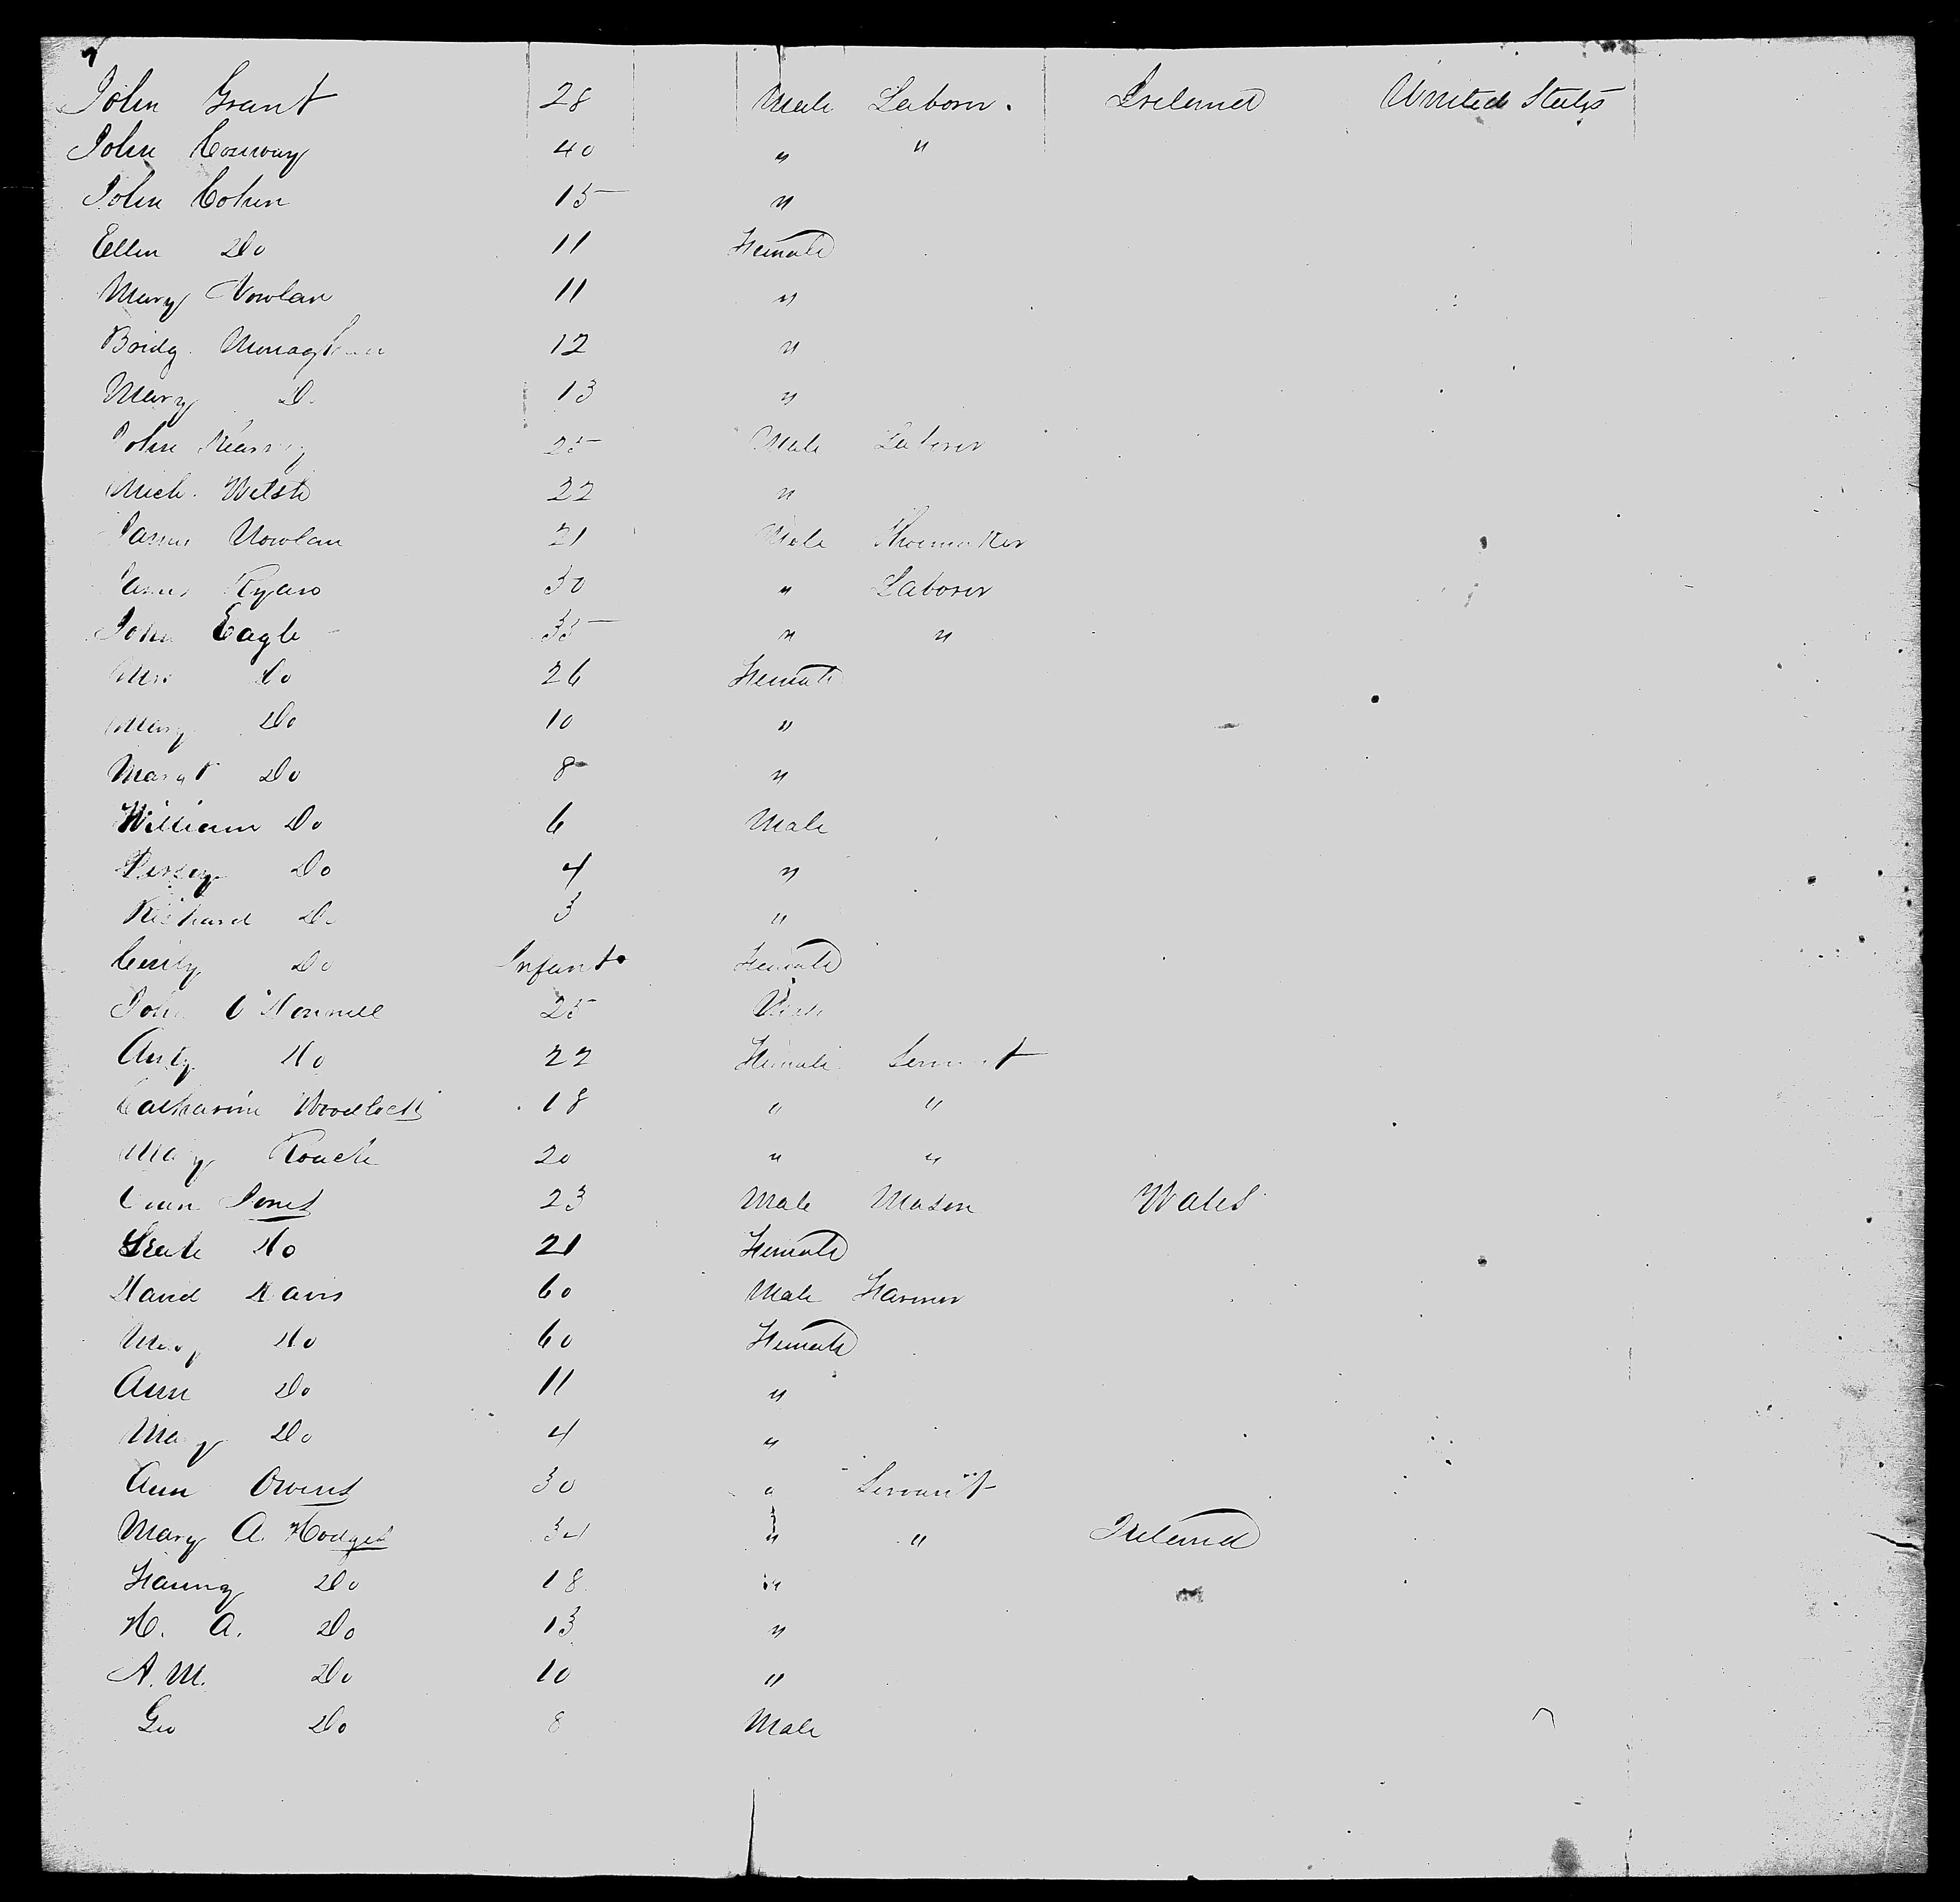 John Grant 28 Male Laborer. Ireland United States
John Conway 40 " "
John Cohen 15 "
Ellen Do 11 Female
Mary Nowlan 11 "
Bridg. Monaghan 12 "
Mary Do 13 "
John 25 Male Laborer
Mich. Welsh 22 "
James Nowlan 21 Male Shoemaker
James Ryan 30 " Laborer
John Eagle 35 " "
Mrs Do 26 Female
Mary Do 10 "
Margt Do 8 "
William Do 6 Male
Do 4 "
Richard Do 3 "
Do Infant Female
John O'Donnell 25 Male
Do 22 Female Servant
Catharine Woodlock 18 " "
Mary Roach 20 " "
Evan Jones 23 Male Mason Wales
Do 21 Female
David Davis 60 Male Farmer
Mary Do 60 Female
Ann Do 11 "
Mary Do 4 "
Ann Owens 30 " Servant
Mary A. Hodges 34 " " Ireland
Fanny Do 18 "
H. A. Do 13 "
A. M. Do 10 "
Geo Do 8 Male